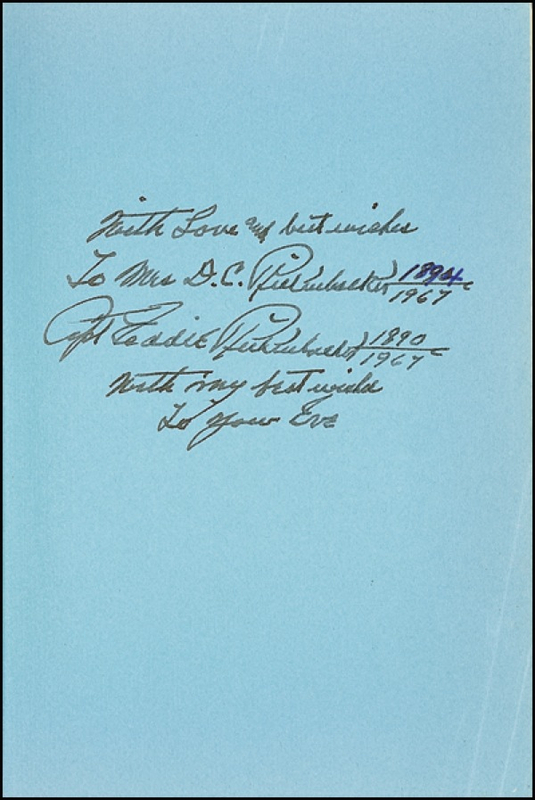 With Love and best wishes
To Mrs D.C. Rickenbacker 1894/1967
Capt Eddie Rickenbacker 1890/1967
With my best wishes
To your Eve